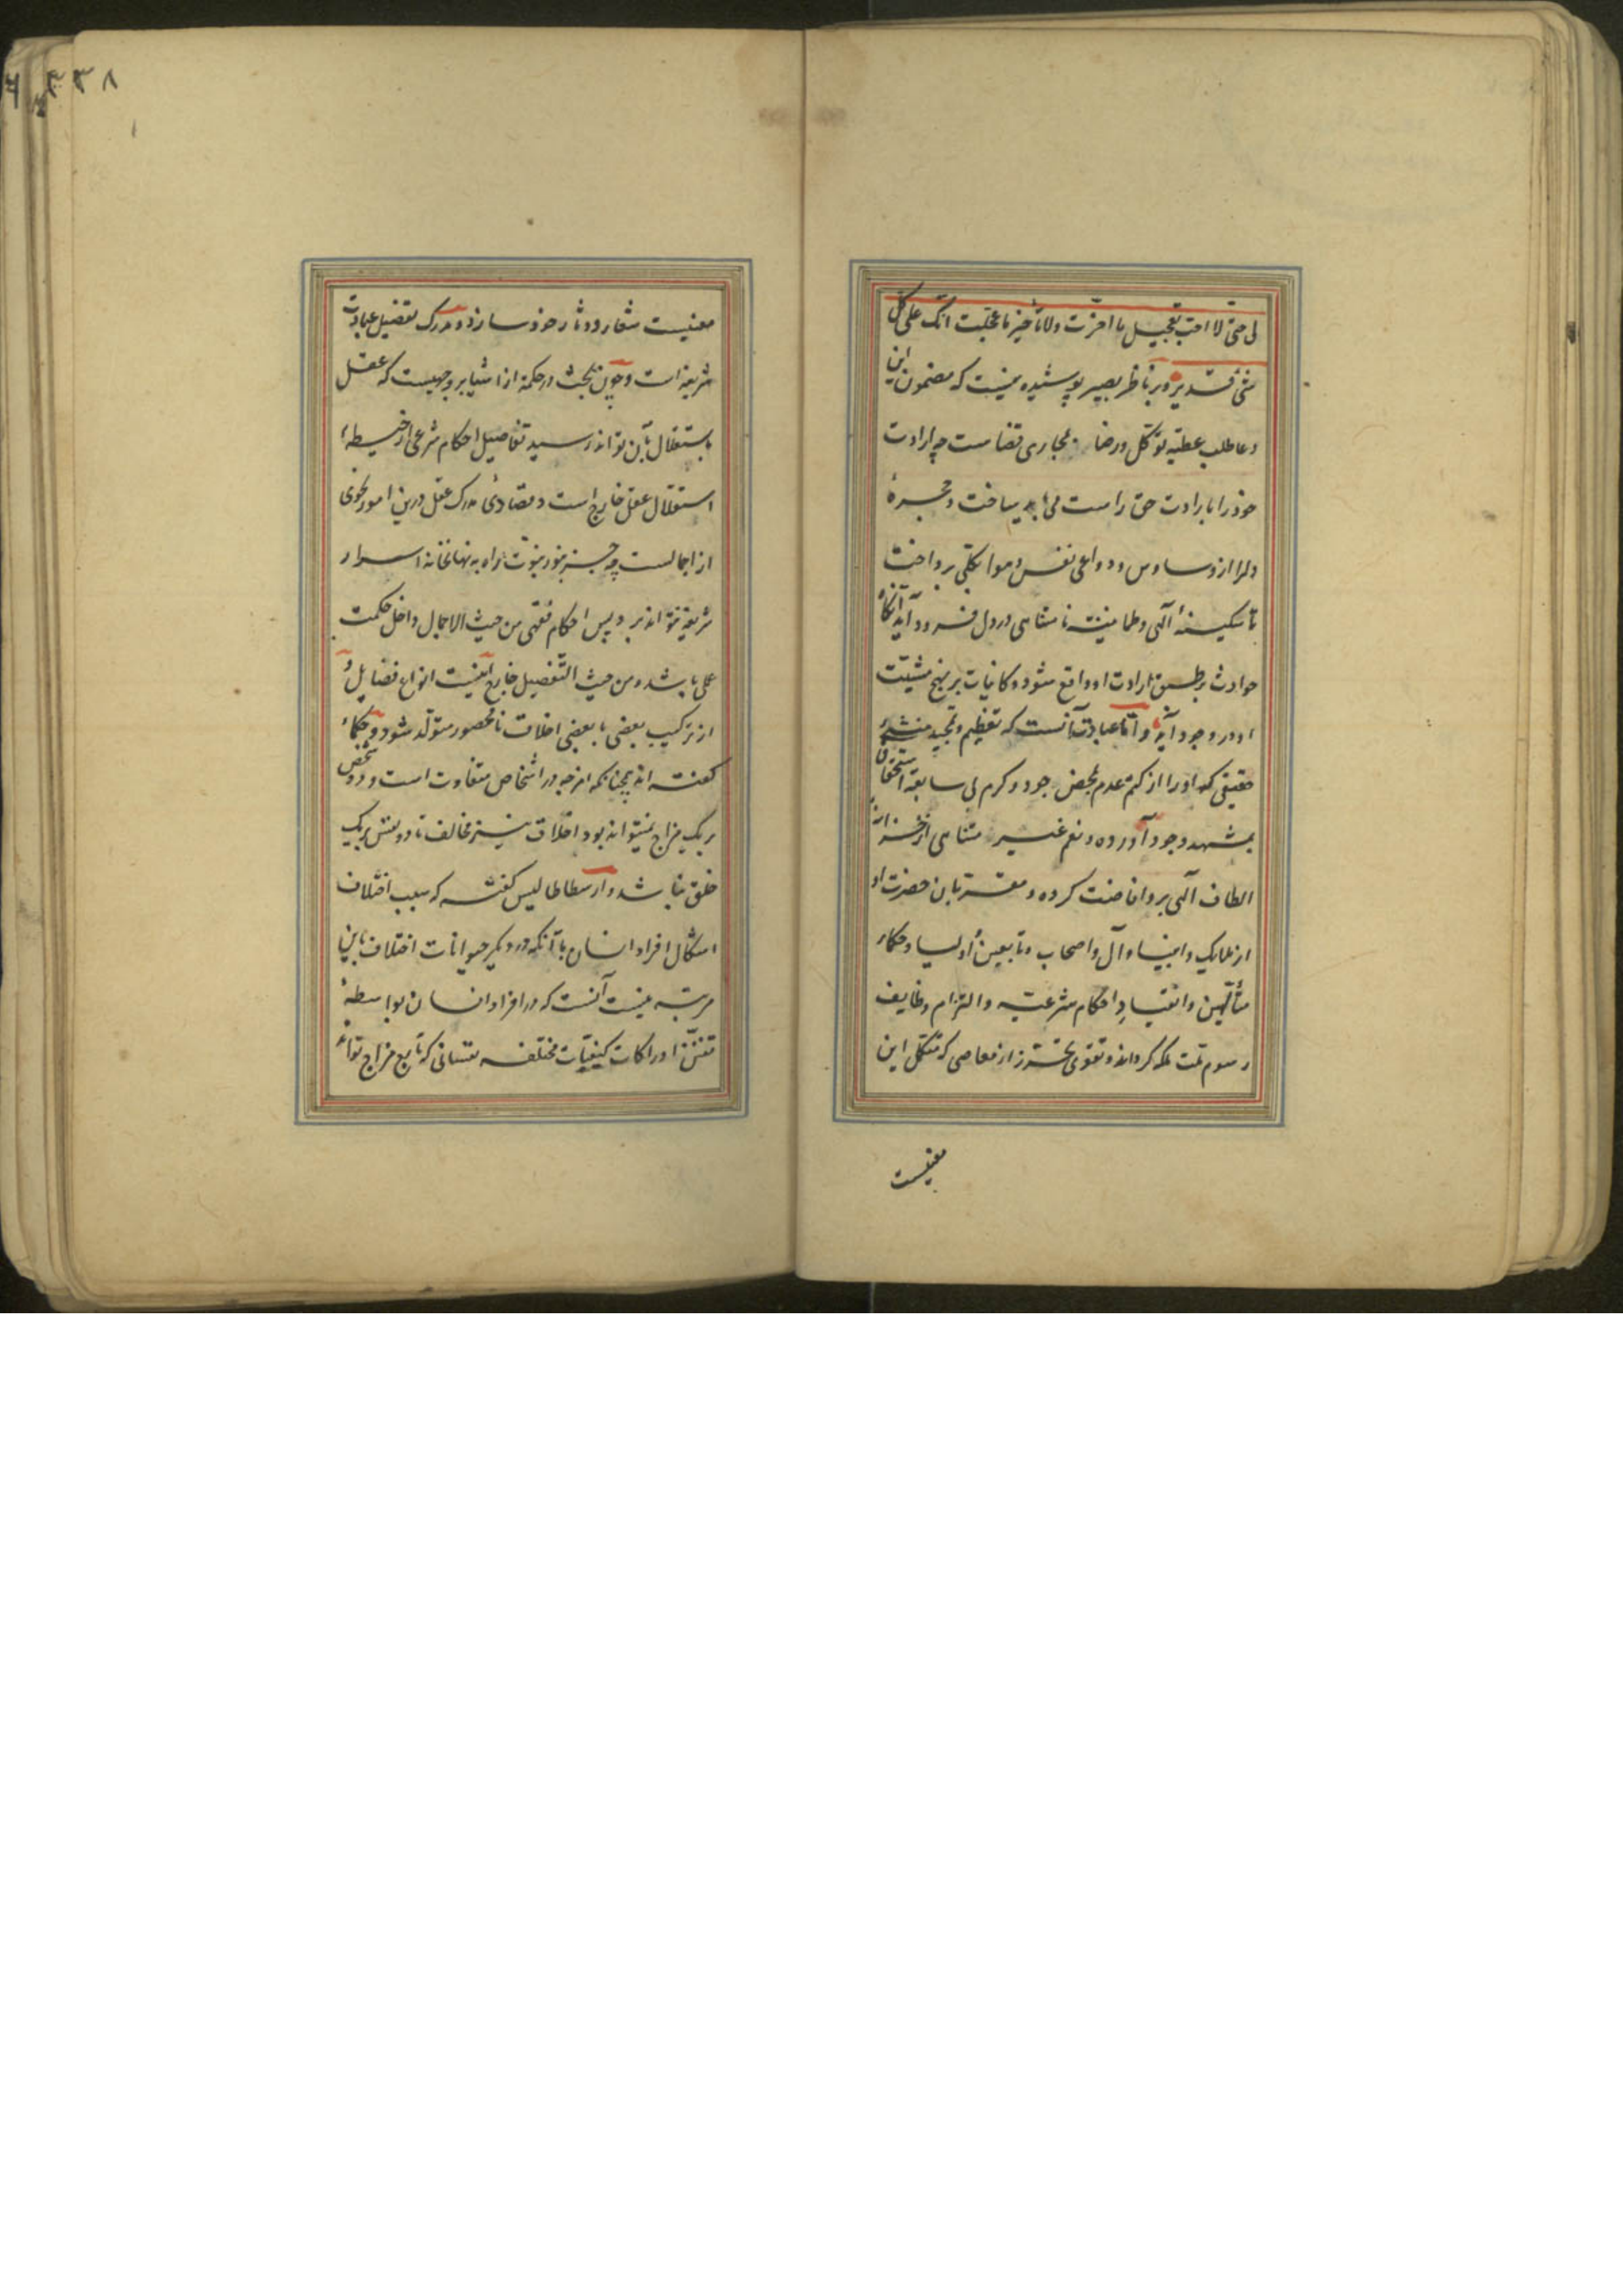 لی حتی لا احب تعجیل ما اخرت ولا تأخیر ما عجلت انک علی کل
شئ قدیر و بر ناظر بصیر پوشیده نیست که مضمون این
دعا طلب عطیه توکل و رضا بمجاری قضاست چه ارادت
خود را با ارادت حق راست می باید ساخت و حجرهٔ
دلرا از وساوس و دواعی نفس و هوا بکلی پرداخت
تا سکینهٔ الهی و طمانینت نامتناهی در دل فرود آید آنکاه
حوادث بر طبق ارادت او واقع شود و کاینات بر نهج مشیت
او در وجود آید و اما عبادت آنست که تعظیم و تمجید منشئ
حقیقی که او را از کتم عدم بمحض جود و کرم بی سابقه استحقاق
بمشهد وجود آورده و نعم غیر متناهی از خزانهٔ
الطاف الهی برو افاضت کرده و مقربان حضرت او
از ملایک و انبیا و آل و اصحاب و تابعین و اولیا و حکماء
متألهین و انقیاد احکام شرعیه و التزام وظایف
رسوم ملت ملکه کرداند و تقوی و تحرز از معاصی که مکمل این
معنیست
معنیست شعار و دثار خود سازد و مدرک تفصیل عبادت
شریعت است و چون بحث در حکمة از اشیا بر وجهیست که عقل
باستقلال بآن تواند رسید تفاصیل احکام شرعی از حیطهٔ
استقلال عقل خارج است و مدرک عقل درین امور بنحوی
از اجمالست چه جز بنور نبوت راه به نهانخانه اسرار
شریعة نتواند برد پس احکام فقهی من حیث الاجمال داخل حکمت
عملی باشد و من حیث التفصیل خارج اینست انواع فضایل و
از ترکیب بعضی با بعضی اخلاق نامحصور متولد شود و حکماء
کفته اند همچنانکه امزجه در اشخاص متفاوت است و دو شخص
بر یک مزاج نمیتواند بود اخلاق نیز مخالف تا دو نفس بر یک
خلق نباشد و ارسطاطالیس کفته که سبب اختلاف
اشکال افراد انسان با آنکه در دیکر حیوانات اختلاف باین
مرتبه نیست آنست که در افراد انسان بواسطهٔ
تفنن ادراکات کیفیات مختلفه نفسانی که تابع مزاج تواند